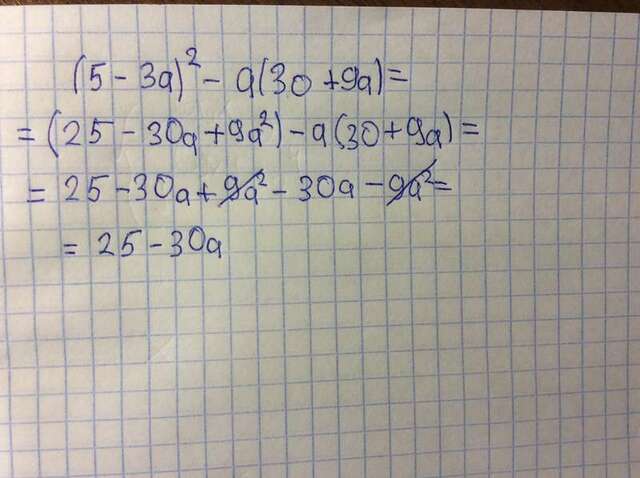 (5 - 3a)² - a(30 + 9a) =
= (25 - 30a + 9a²) - a(30 + 9a) =
= 25 - 30a + 9a² - 30a - 9a² =
= 25 - 30a